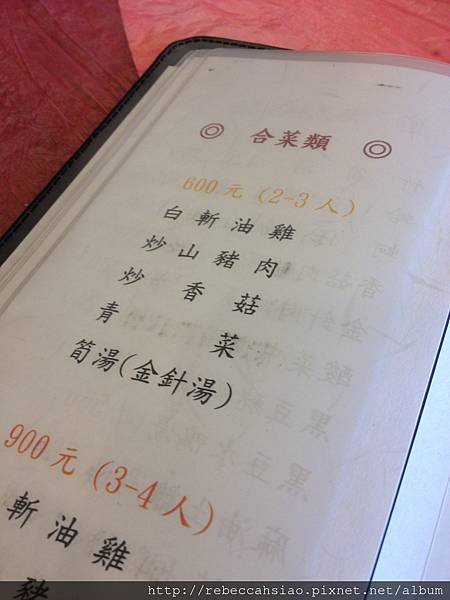 ◎ 合菜類 ◎
600元(2-3人)
白斬油雞
炒山豬肉
炒香菇
青菜
筍湯(金針湯)
900元(3-4人)
斬油雞
豬
http://rebeccahsiao.pixnet.net/album